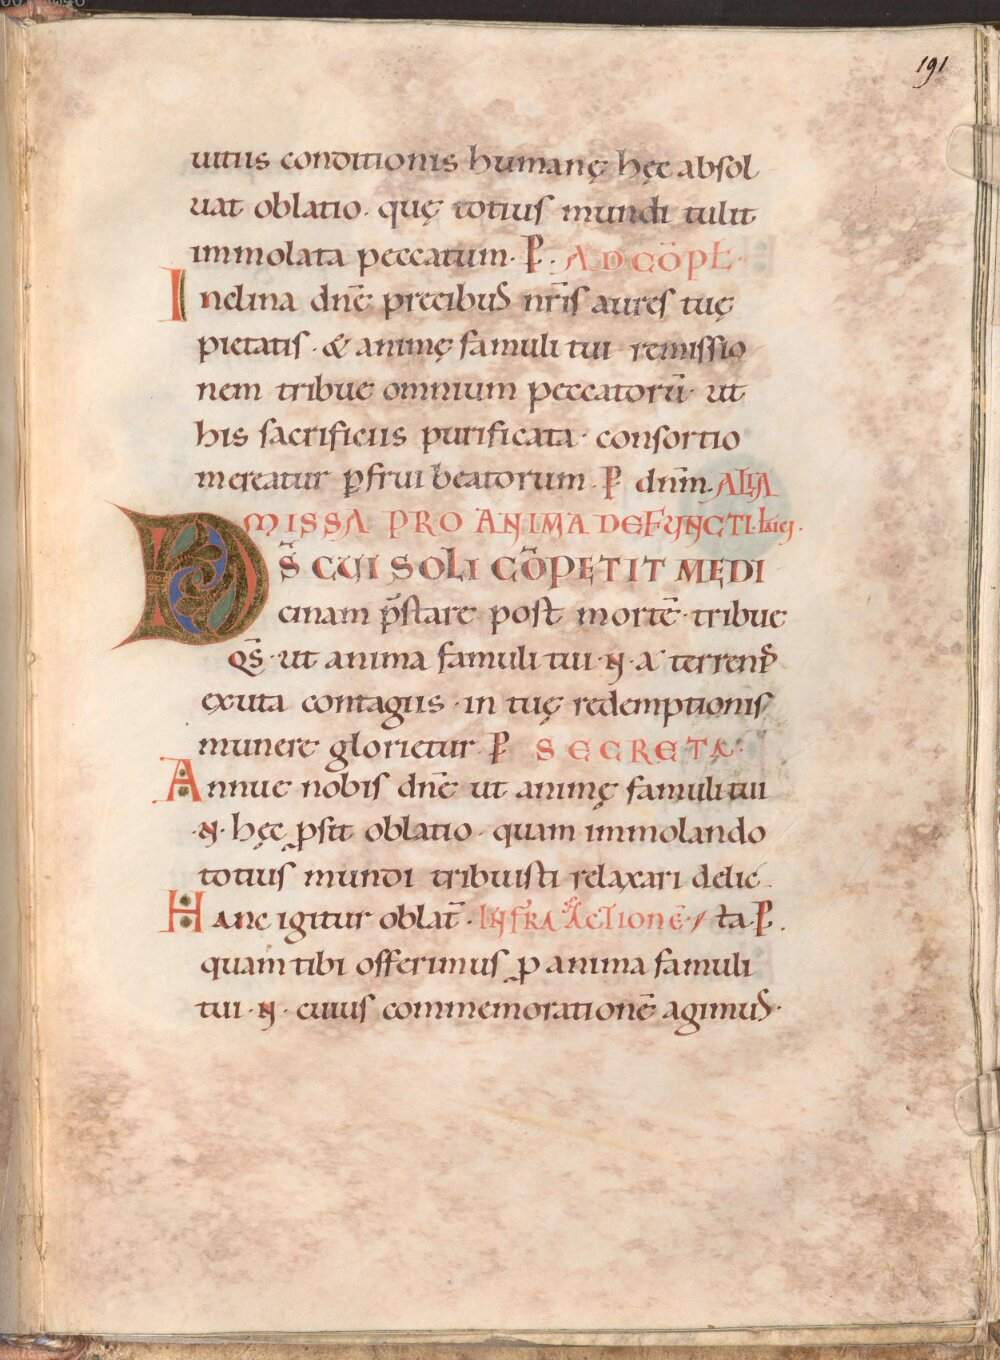 191
uitiis conditionis humanę hęc absol
uat oblatio. quę totius mundi tulit
immolata peccatum. P. AD CŌPL
Inclina dn̄e precibus nr̄is aures tuę
pietatis. & animę famuli tui remissio
nem tribue omnium peccatorū. ut
his sacrificiis purificata. consortio
mereatur ꝑfrui beatorum. P dnm̄. ALIA
MISSA PRO ANIMA DEFUNCTI. laici.
DS̄ CUI SOLI CŌPETIT MEDI
cinam p̄stare post mortē. tribue
QS̄. ut anima famuli tui .N. a terrenis
exuta contagiis. in tuę redemptionis
munere glorietur. P SECRETA.
Annue nobis dn̄e ut animę famuli tui
.N. hęc ꝓsit oblatio. quam immolando
totius mundi tribuisti relaxari delic
Hanc igitur oblat̄. INFRA ACTIONĒ. ta P.
quam tibi offerimus ꝓ anima famuli
tui .N. cuius commemorationē agimus.